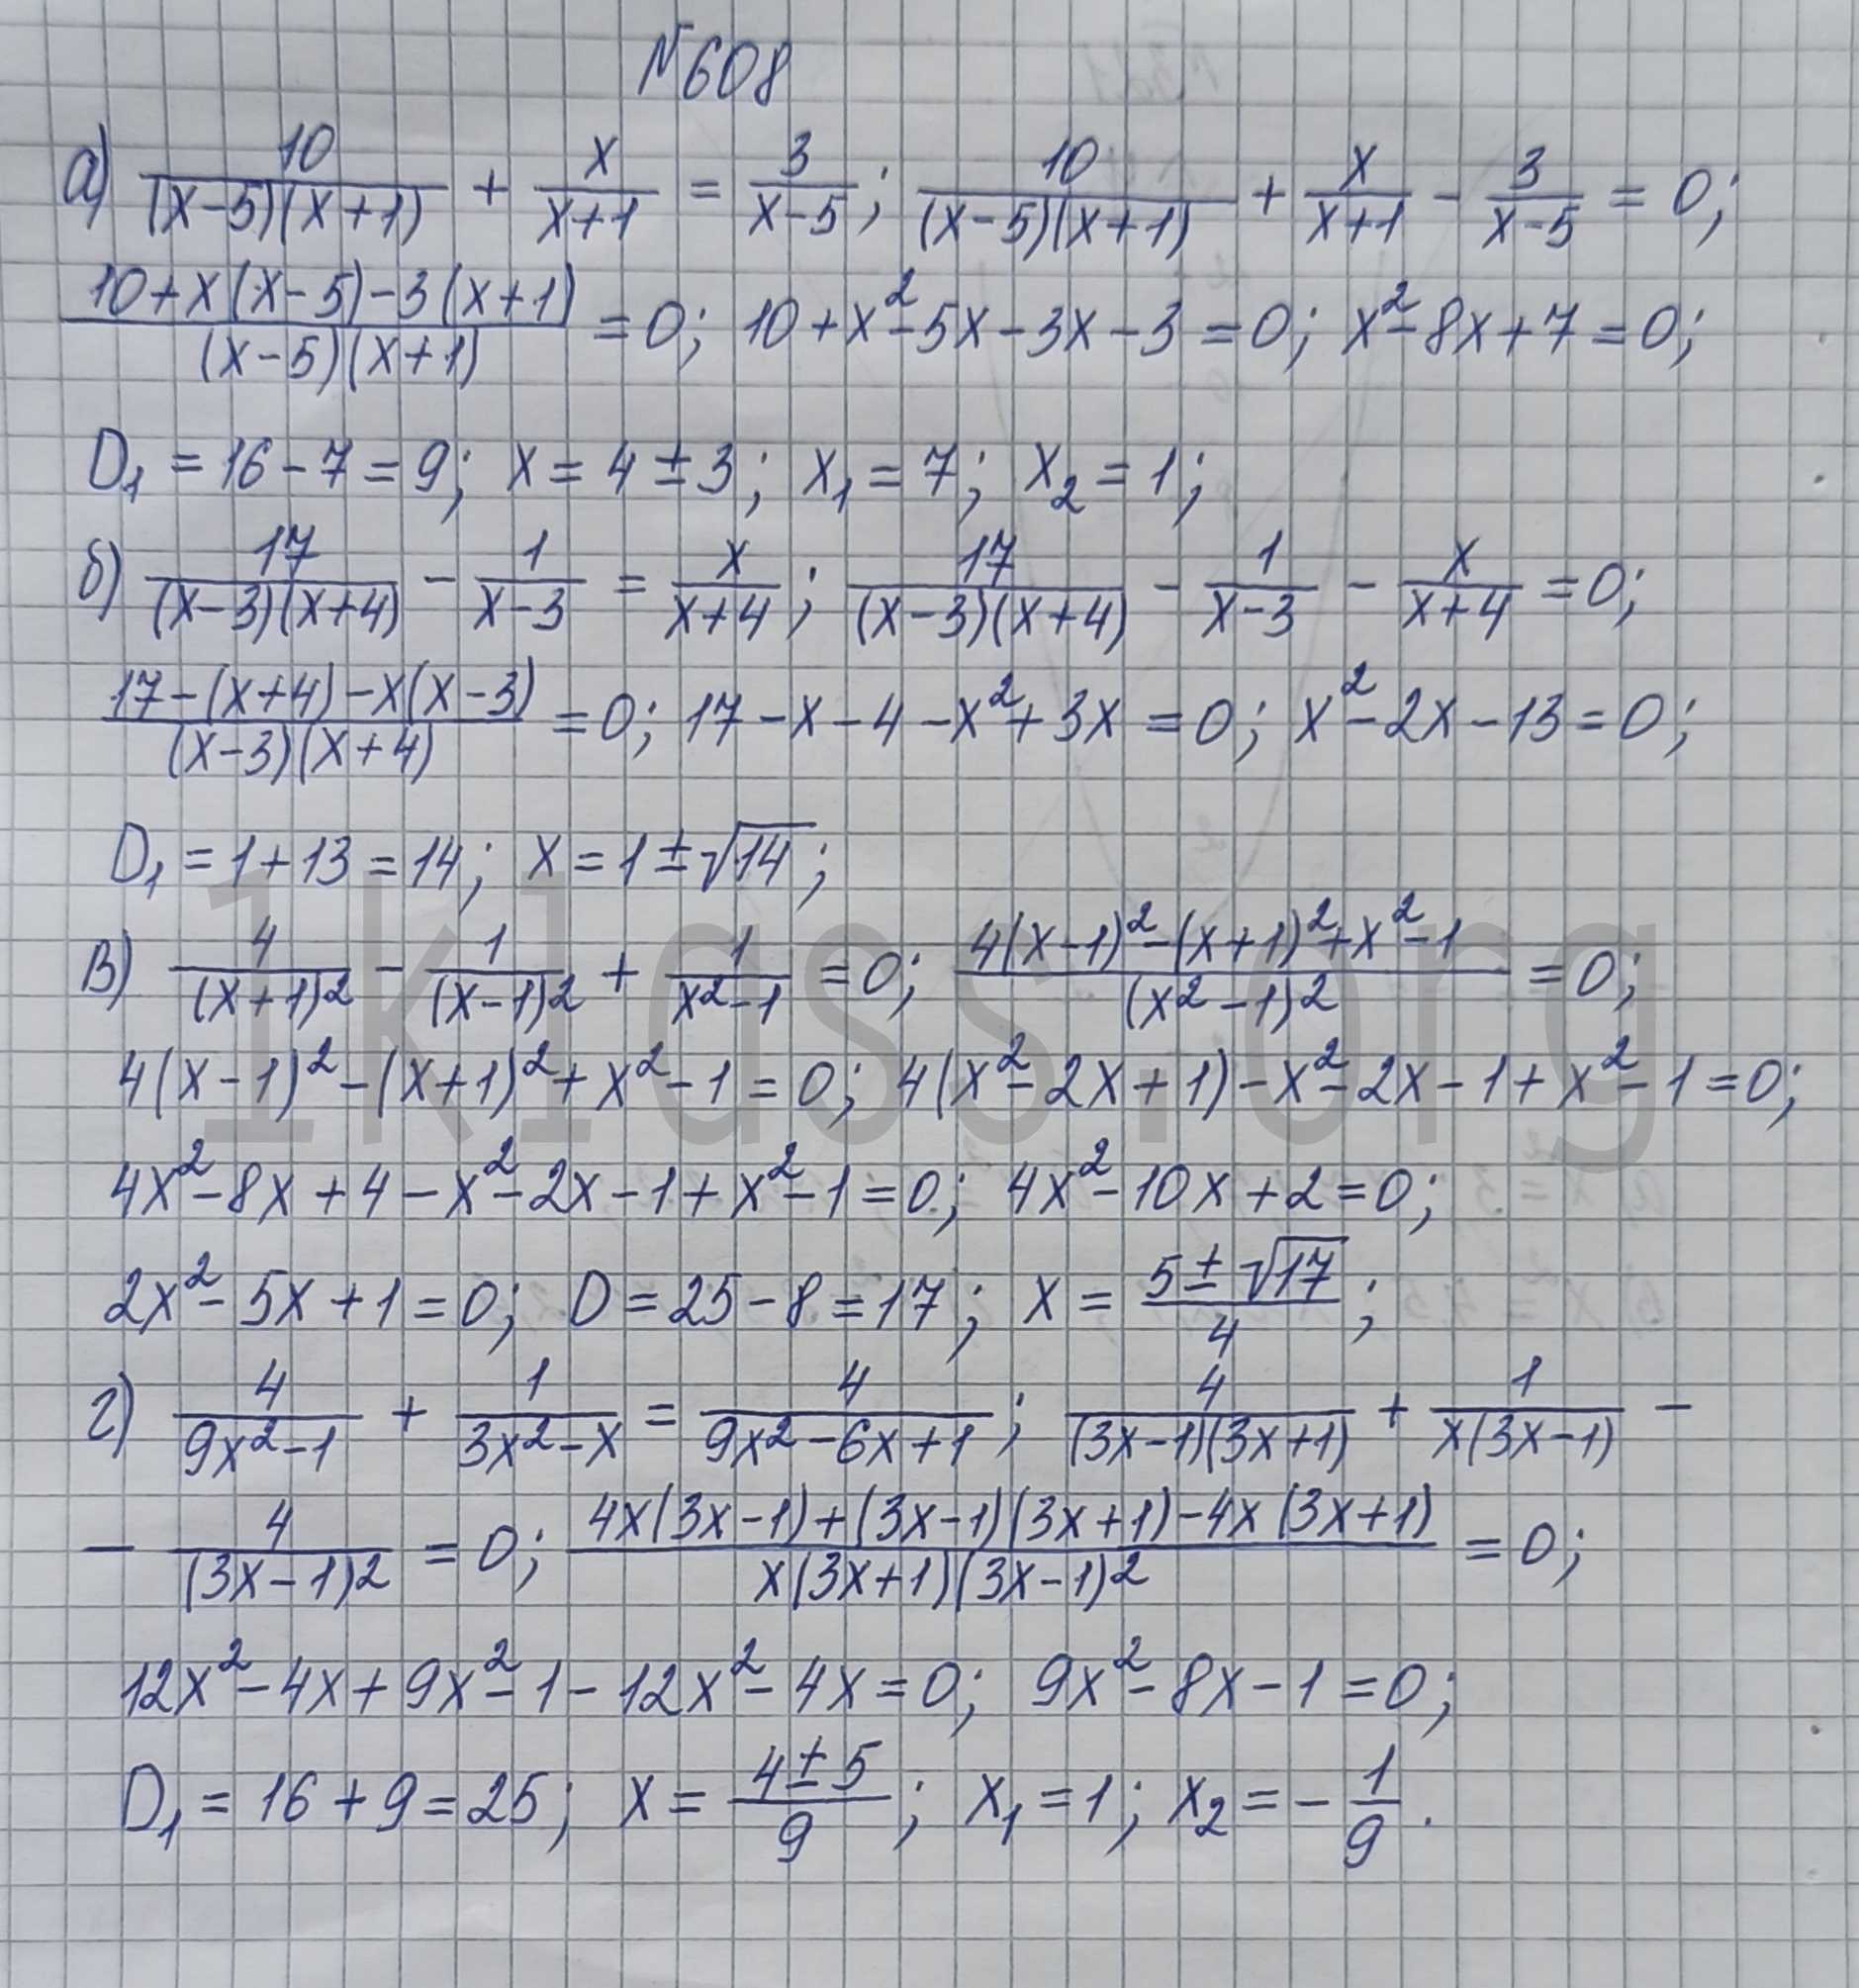 №608
а) 10/((x-5)(x+1)) + x/(x+1) = 3/(x-5); 10/((x-5)(x+1)) + x/(x+1) - 3/(x-5) = 0;
(10+x(x-5)-3(x+1))/((x-5)(x+1)) = 0; 10+x²-5x-3x-3=0; x²-8x+7=0;
D₁ = 16-7=9; x=4±3; x₁=7; x₂=1;
б) 17/((x-3)(x+4)) - 1/(x-3) = x/(x+4); 17/((x-3)(x+4)) - 1/(x-3) - x/(x+4) = 0;
(17-(x+4)-x(x-3))/((x-3)(x+4)) = 0; 17-x-4-x²+3x=0; x²-2x-13=0;
D₁=1+13=14; x=1±√14;
в) 4/(x+1)² - 1/(x-1)² + 1/(x²-1) = 0; (4(x-1)²-(x+1)²+x²-1)/(x²-1)² = 0;
4(x-1)²-(x+1)²+x²-1=0; 4(x²-2x+1)-x²-2x-1+x²-1=0;
4x²-8x+4-x²-2x-1+x²-1=0; 4x²-10x+2=0;
2x²-5x+1=0; D=25-8=17; x=(5±√17)/4;
г) 4/(9x²-1) + 1/(3x²-x) = 4/(9x²-6x+1); 4/((3x-1)(3x+1)) + 1/(x(3x-1)) -
- 4/(3x-1)² = 0; (4x(3x-1)+(3x-1)(3x+1)-4x(3x+1))/(x(3x+1)(3x-1)²) = 0;
12x²-4x+9x²-1-12x²-4x=0; 9x²-8x-1=0;
D₁=16+9=25; x=(4±5)/9; x₁=1; x₂=-1/9.
1klass.org